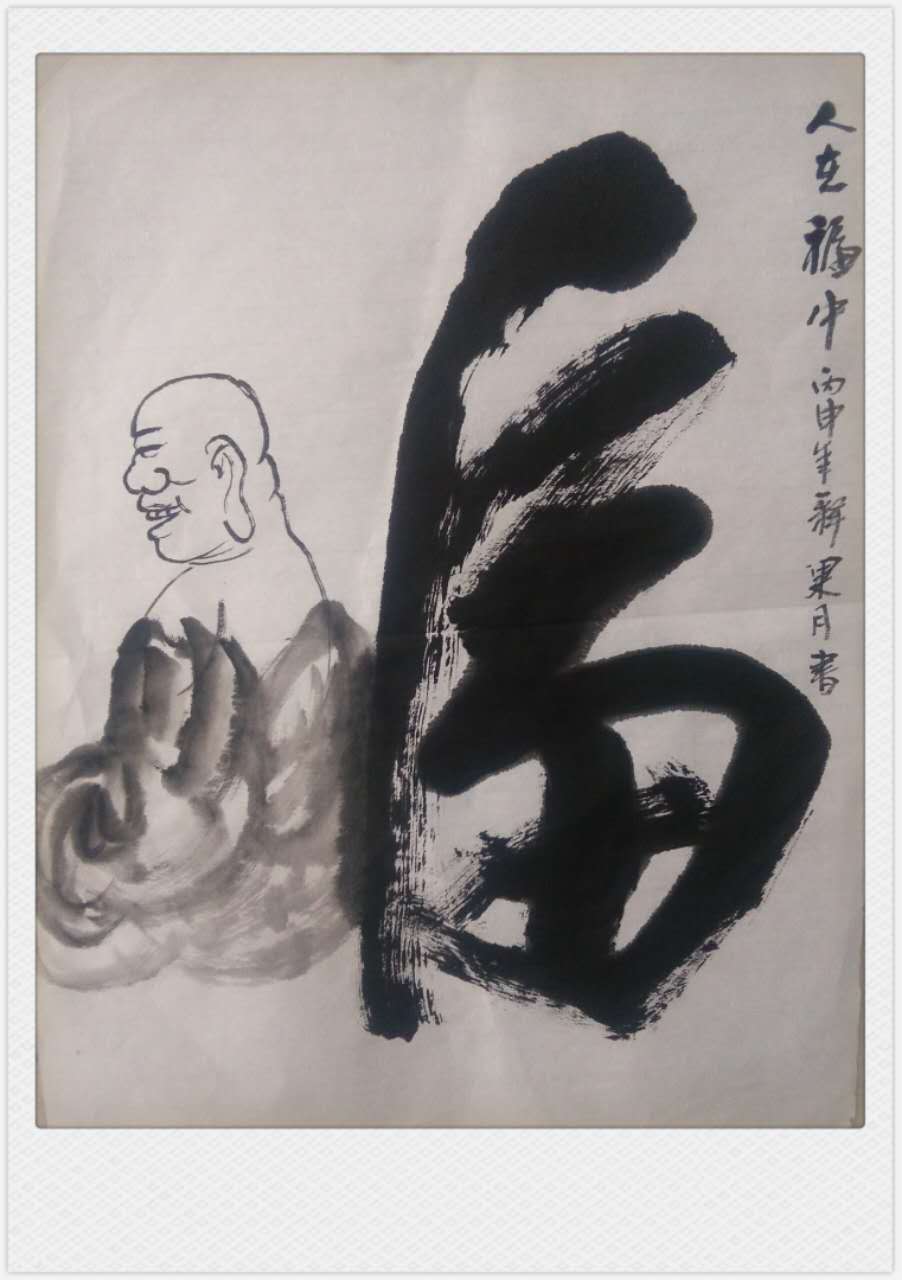 人在福中 丙申年释果月书
福